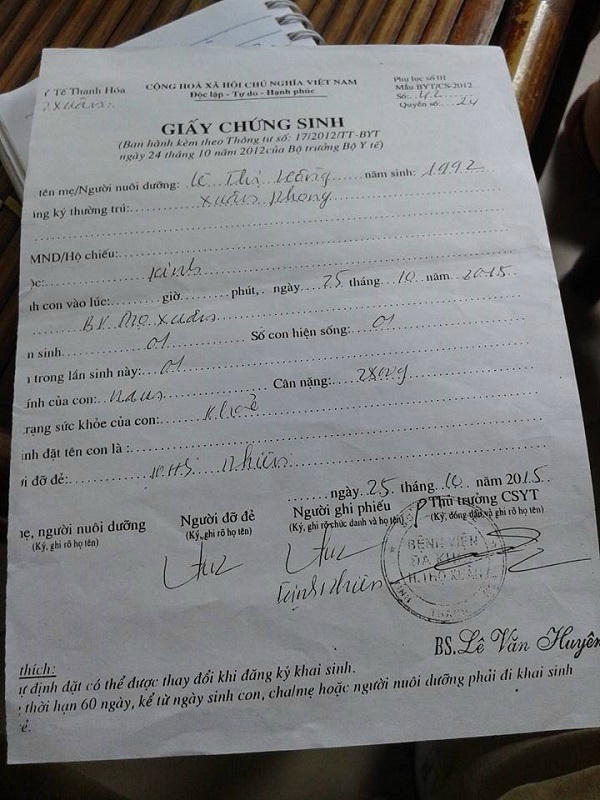 Y Tế Thanh Hóa
CỘNG HOÀ XÃ HỘI CHỦ NGHĨA VIỆT NAM
Độc lập - Tự do - Hạnh phúc
Phụ lục số 01
Mẫu BYT/CS-2012
Số:
Quyển số: 24
GIẤY CHỨNG SINH
(Ban hành kèm theo Thông tư số: 17/2012/TT-BYT
ngày 24 tháng 10 năm 2012 của Bộ trưởng Bộ Y tế)
tên mẹ/Người nuôi dưỡng: Lê Thị năm sinh: 1992
ng ký thường trú: Xuân Phong
MND/Hộ chiếu:
ộc: Kinh
nh con vào lúc: giờ phút, ngày 25 tháng 10 năm 2015
BV Thọ Xuân
n sinh 01 Số con hiện sống: 01
n trong lần sinh này: 01
ính của con: Nam Cân nặng:
rạng sức khỏe của con: Khoẻ
ịnh đặt tên con là:
i đỡ đẻ: NHS Nhiên
ngày 25 tháng 10 năm 2015
ẹ, người nuôi dưỡng Người đỡ đẻ Người ghi phiếu Thủ trưởng CSYT
(Ký, ghi rõ họ tên) (Ký, ghi rõ họ tên) (Ký, ghi rõ chức danh và họ tên) (Ký, đóng dấu và ghi rõ họ tên)
BỆNH VIỆN
ĐA KHOA
H.THỌ XUÂN
BS. Lê Văn Huyên
thích:
ự định đặt có thể được thay đổi khi đăng ký khai sinh.
g thời hạn 60 ngày, kể từ ngày sinh con, cha/mẹ hoặc người nuôi dưỡng phải đi khai sinh
ẻ.